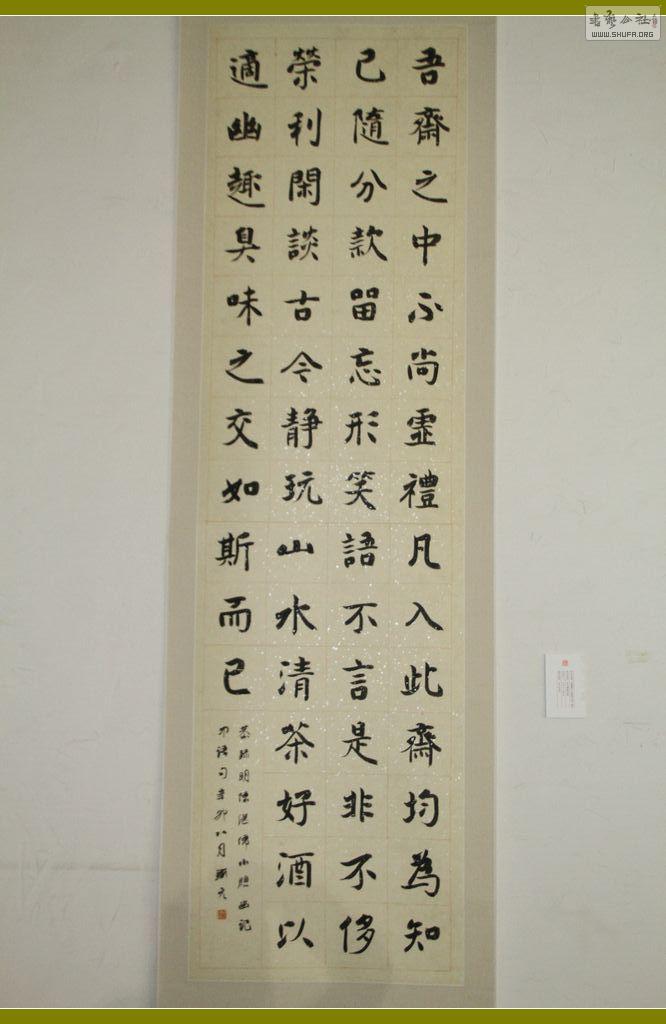 吾齋之中不尚虛禮凡入此齋均為知
己隨分款留忘形笑語不言是非不侈
榮利閑談古今靜玩山水清茶好酒以
適幽趣臭味之交如斯而已
辛卯八月
WWW.SHUFA.ORG